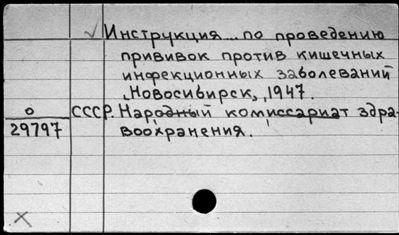 Инструкция... по проведению
прививок против кишечных
инфекционных заболеваний
Новосибирск, 1947.
О
29797
СССР. Народный комиссариат здра-
воохранения.